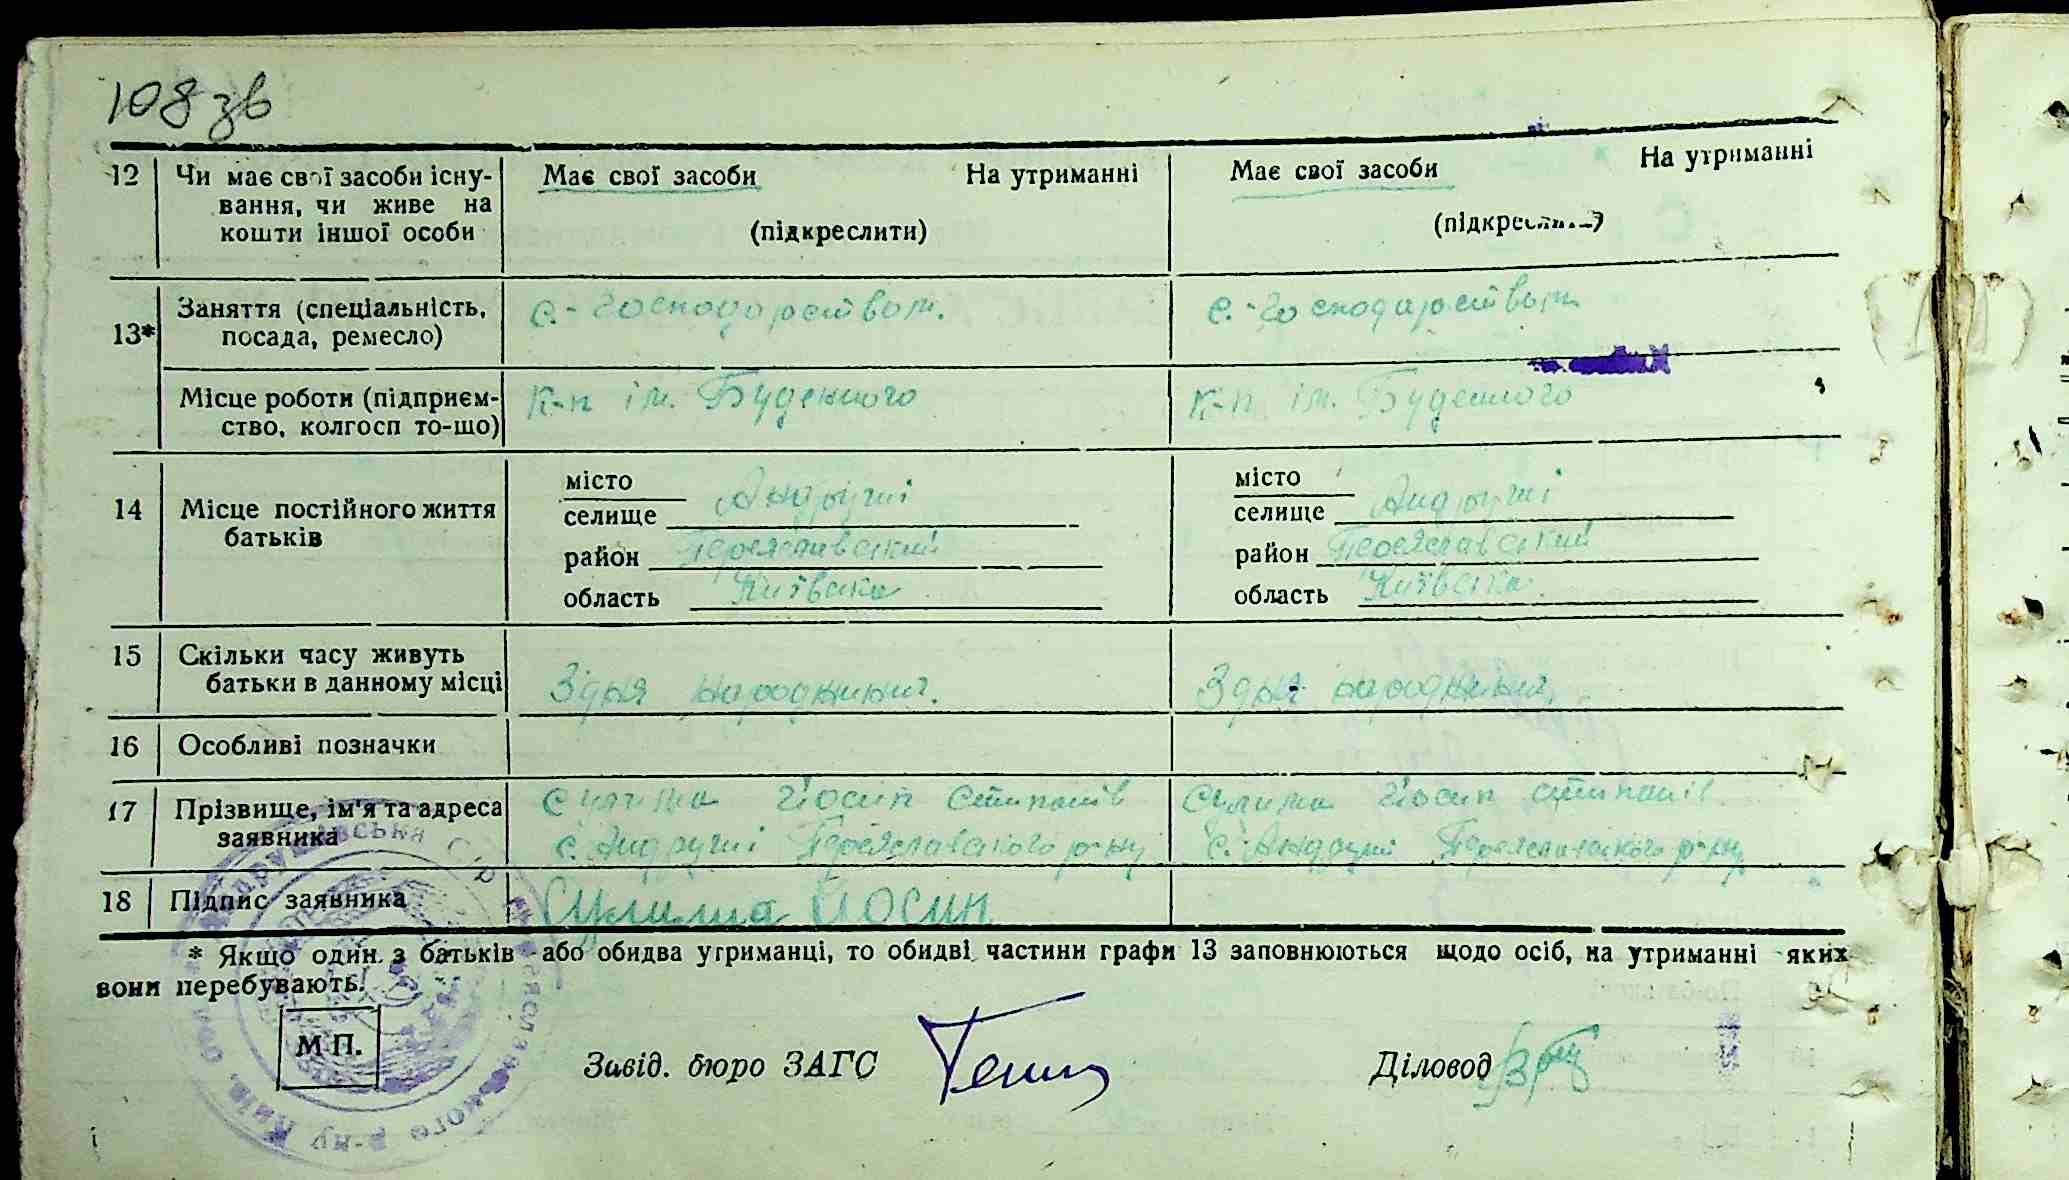 108 зв
12 Чи має свої засоби існу- Має свої засоби На утриманні Має свої засоби На утриманні
вання, чи живе на (підкреслити) (підкреслити)
кошти іншої особи
13* Заняття (спеціальність, с.-господарством. с.-господарством
посада, ремесло)
Місце роботи (підприєм- к-п ім. Буденного к-п ім. Буденого
ство, колгосп то-що)
14 Місце постійного життя батьків
місто Андруші місто Андруші
селище селище
район Переяславський район Переяславський
область Київська область Київська
15 Скільки часу живуть З дня народження. З дня народження
батьки в данному місці
16 Особливі позначки
17 Прізвище, ім'я та адреса Сулима Йосип Степанів Сулима Йосип Степанів
заявника с. Андруші Переяславского р-ну с. Андруші Переяславського р-ну
18 Підпис заявника Сулима Йосип
* Якщо один з батьків або обидва утриманці, то обидві частини графи 13 заповнюються щодо осіб, на утриманні яких
вони перебувають.
М П. Завід. бюро ЗАГС Діловод